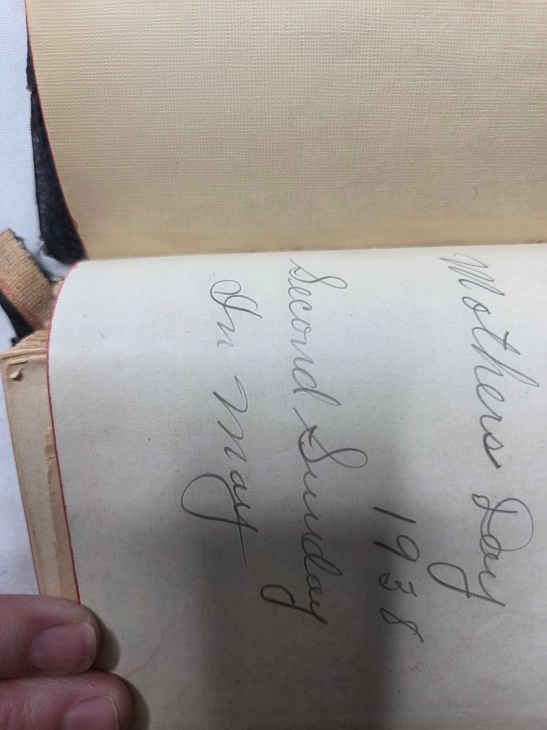 Mothers Day
1938
Second Sunday
In May